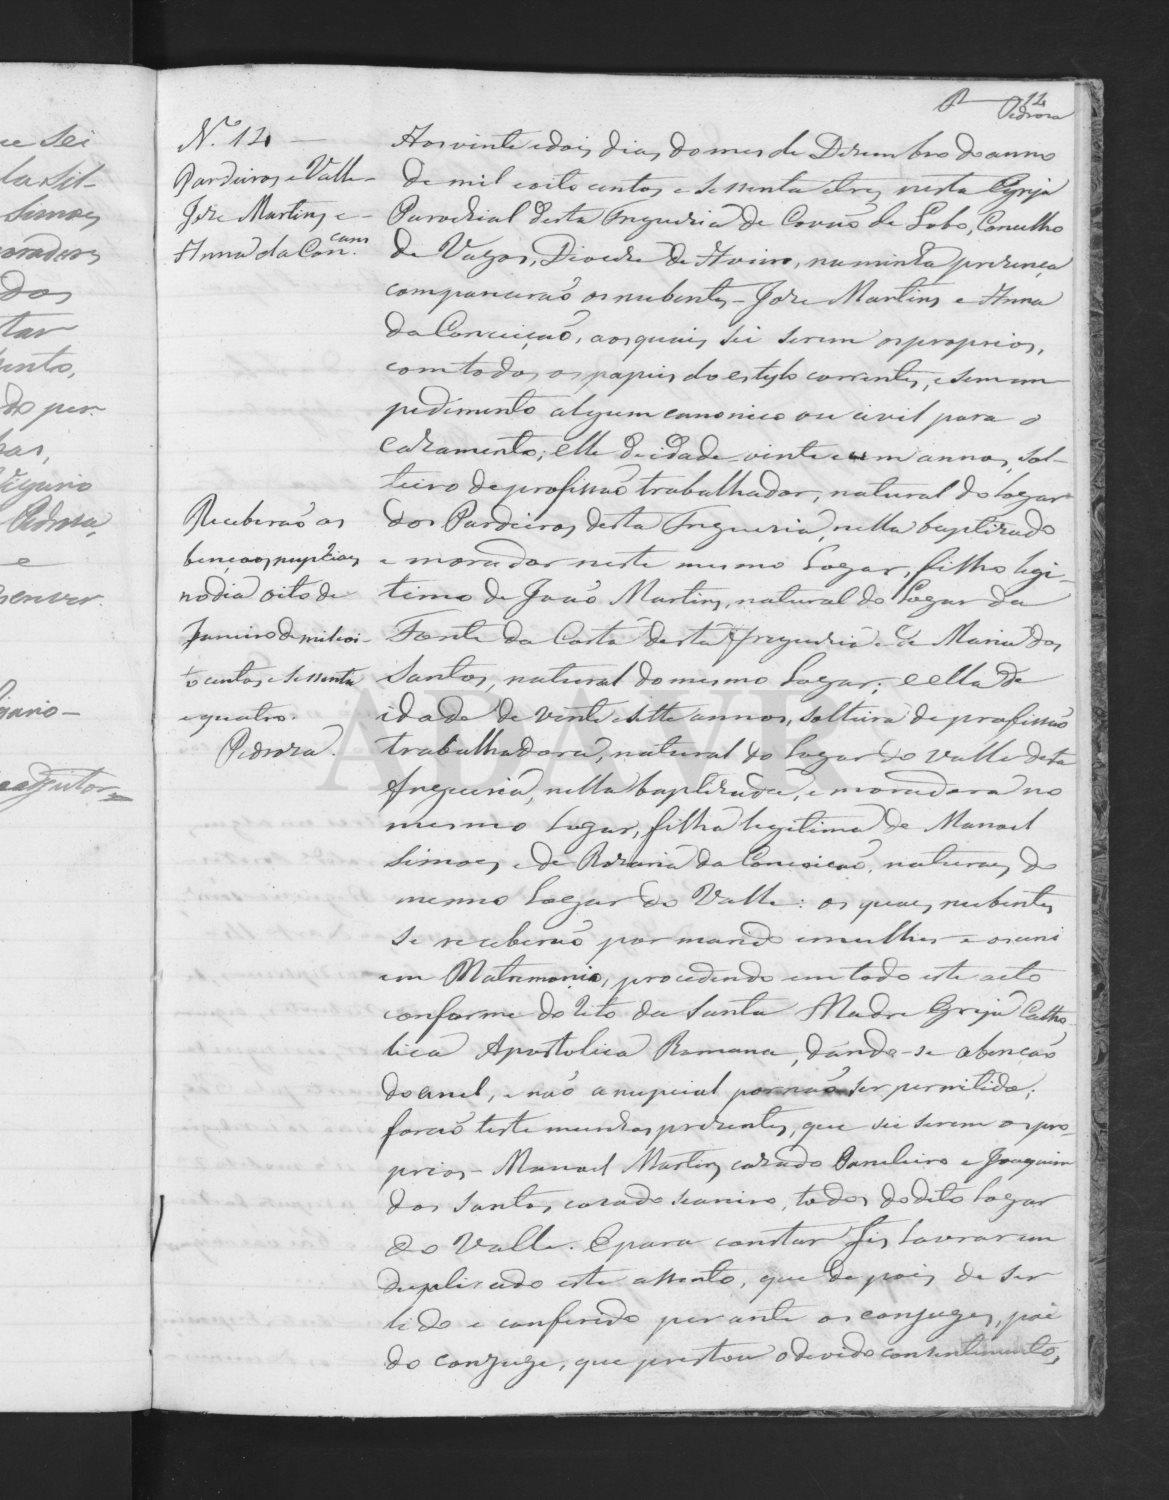 12
Pedroza
N.º 14
Pardeiros e Valle
Joze Martins e
Anna da Con.cam
Aos vinte e dois dias do mes de Dezembro do anno
de mil e oito centos e sessenta e tres nesta Egreja
Parochial desta Freguezia de Covão do Lobo, Concelho
de Vagos, Diocese de Aveiro, na minha prezença
comparecerão os nubentes - Joze Martins e Anna
da Conceição, aos quais sei serem os proprios,
com todos os papeis do estylo correntes, e sem im
pedimento algum canonico ou civil para o
cazamento; elle de idade vinte e um annos, sol-
teiro de profissão trabalhador, natural do logar
dos Pardeiros desta Freguezia, nella baptizado
e morador neste mesmo logar, filho legi-
timo de João Martins, natural do Logar da
Fonte da Costa desta freguezia e de Maria dos
Santos, natural do mesmo Logar; e ella de
idade de vinte e sette annos, solteira de profissão
trabalhadora, natural do logar do Valle desta
freguezia, nella baptizada, e moradora no
mesmo logar, filha legitima de Manoel
Simoes e de Rozaria da Conceição, naturaes do
mesmo Logar do Valle: os quaes nubentes
se receberão por marido e mulher e os uni
em Matrimonio, procedendo em todo este acto
conforme do rito da Santa Madre Egreja Catho-
lica Apostolica Romana, dando-se a benção
do anel, e não a nupcial por não ser permitida;
forão testemunhas prezentes, que sei serem os pro-
prios - Manoel Martins cazado Paneleiro e Joaquim
dos Santos, cazado seareiro, todos do dito Logar
do Valle. E para constar fis lavrar em
duplicado este assento, que depois de ser
lido e conferido perante os conjuges, pai
do conjuge, que prestou o devido consentimento,
Receberão as
bençaos nupciaes
no dia oito de
Janeiro de mil oi-
to centos e sessenta
e quatro.
Pedroza.